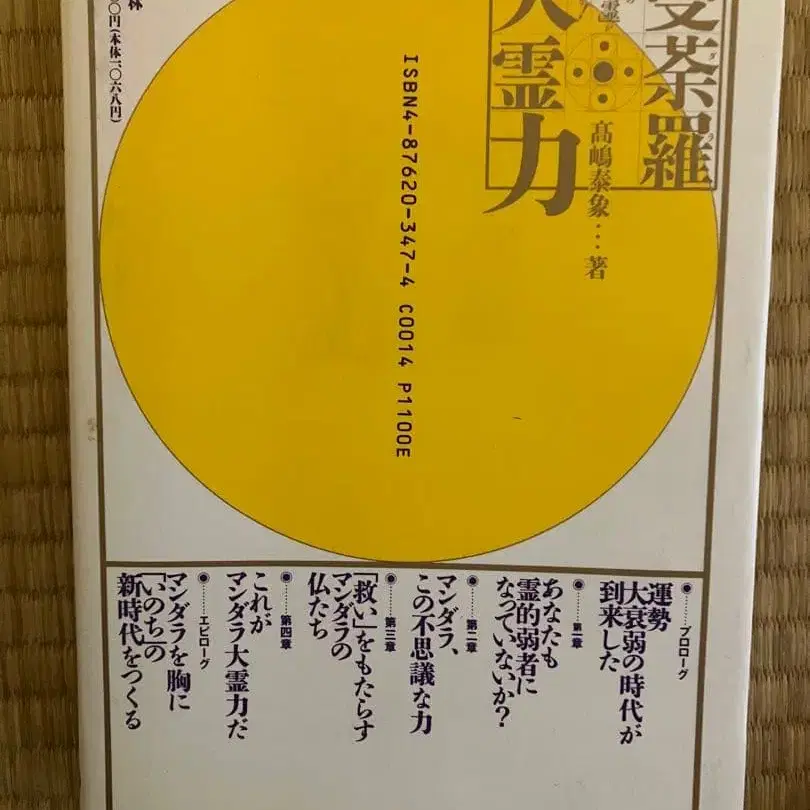 荼羅
大霊力
髙嶋泰象…著
ISBN4-87620-347-4 C0014 P1100E
林
〇〇円(本体一〇六八円)
●……プロローグ
運勢
大衰弱の時代が
到来した
●……第一章
あなたも
霊的弱者に
なっていないか?
●……第二章
マンダラ、
この不思議な力
●……第三章
「救い」をもたらす
マンダラの
仏たち
●……第四章
これが
マンダラ大霊力だ
●……エピローグ
マンダラを胸に
「いのち」の
新時代をつくる